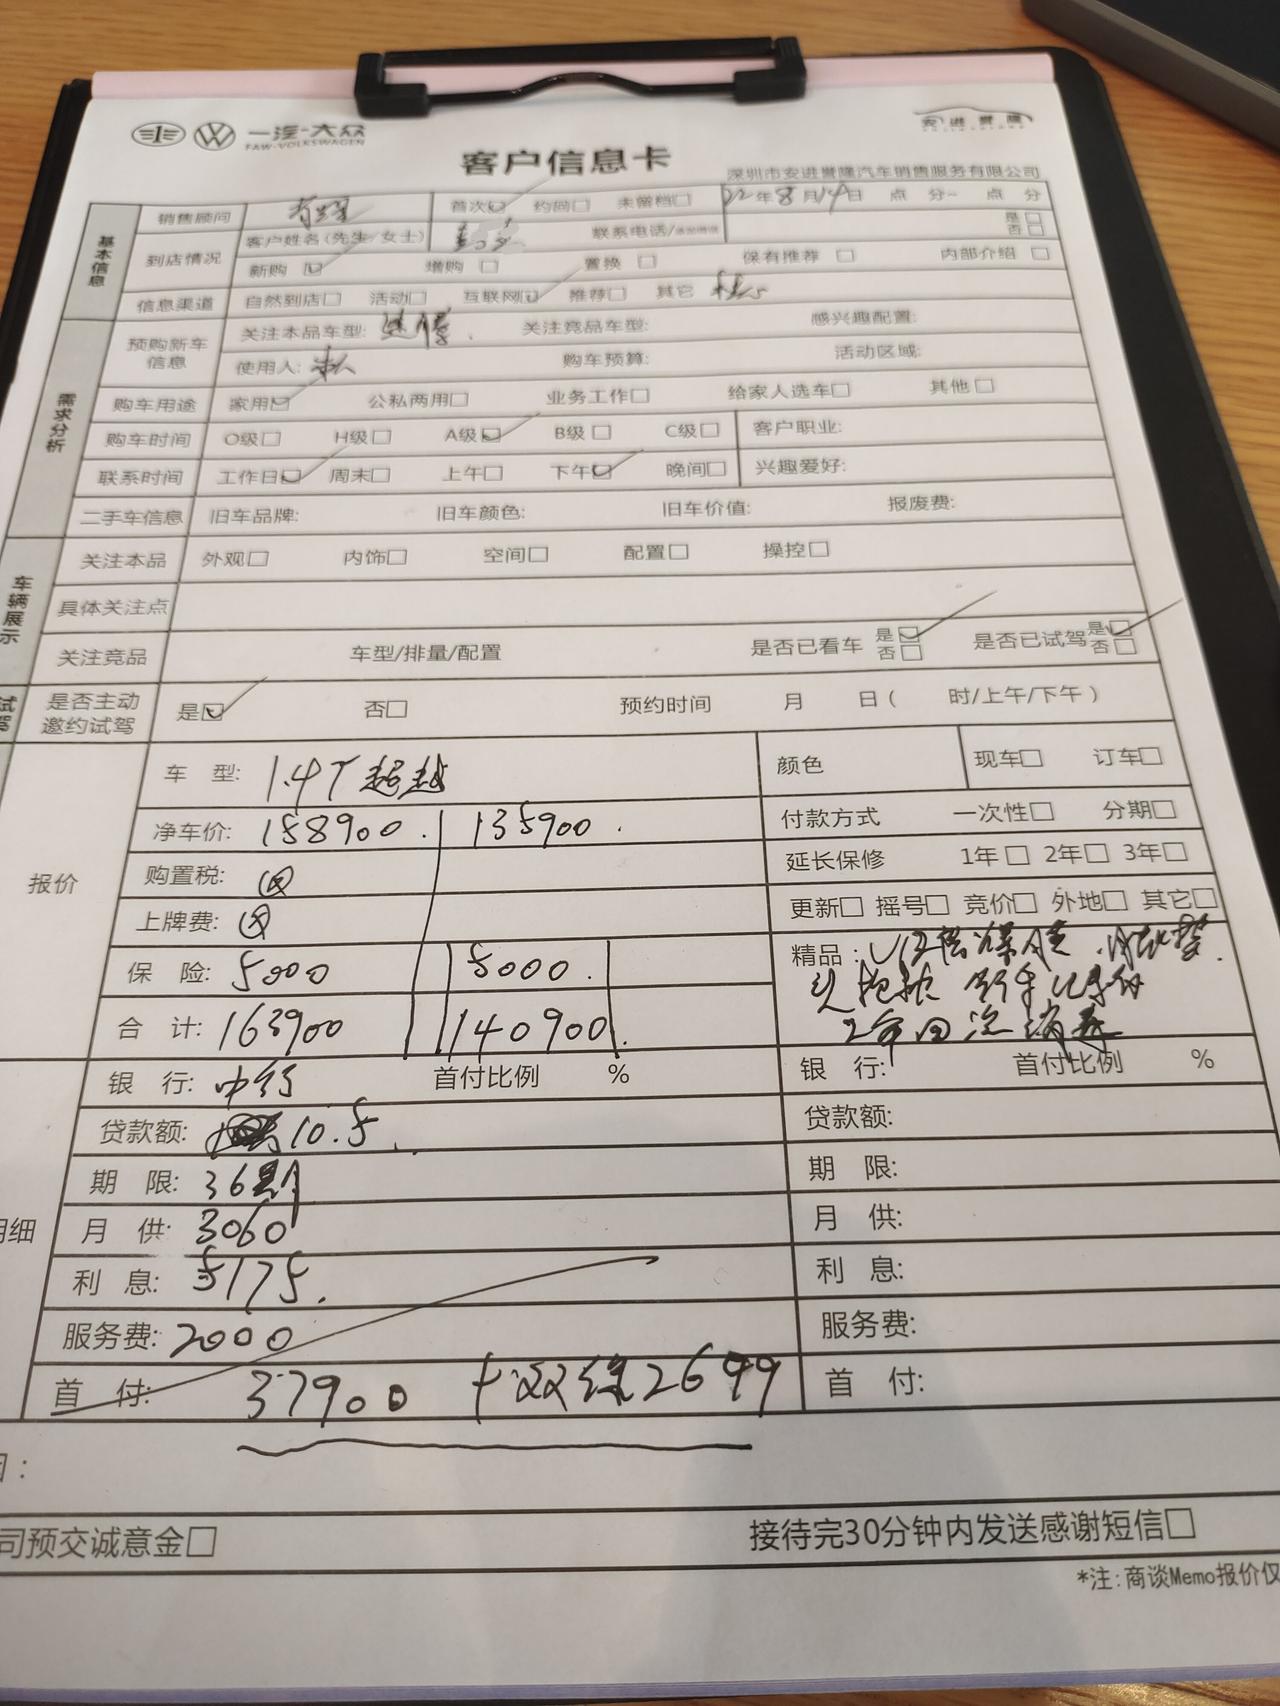 一汽-大众
FAW-VOLKSWAGEN
安进誉隆
客户信息卡
深圳市安进誉隆汽车销售服务有限公司
基本信息
销售顾问 首次☑ 约回□ 未留档□ 22年8月14日 点 分~ 点 分
到店情况 客户姓名(先生/女士) 联系电话/ 是□ 否□
新购☑ 增购□ 置换□ 保有推荐□ 内部介绍□
信息渠道 自然到店□ 活动□ 互联网☑ 推荐□ 其它
需求分析
预购新车信息 关注本品车型: 速腾. 关注竞品车型: 感兴趣配置:
使用人: 本人 购车预算: 活动区域:
购车用途 家用☑ 公私两用□ 业务工作□ 给家人选车□ 其他□
购车时间 O级□ H级□ A级☑ B级□ C级□ 客户职业:
联系时间 工作日☑ 周末□ 上午□ 下午☑ 晚间□ 兴趣爱好:
二手车信息 旧车品牌: 旧车颜色: 旧车价值: 报废费:
车辆展示
关注本品 外观□ 内饰□ 空间□ 配置□ 操控□
具体关注点
关注竞品 车型/排量/配置 是否已看车 是☑ 否□ 是否已试驾 是☑ 否□
试驾
是否主动邀约试驾 是☑ 否□ 预约时间 月 日( 时/上午/下午)
报价
车 型: 1.4T 超越 颜色 现车□ 订车□
净车价: 158900. 135900. 付款方式 一次性□ 分期□
购置税: 延长保修 1年□ 2年□ 3年□
上牌费: 更新□ 摇号□ 竞价□ 外地□ 其它□
保 险: 5000 5000. 精品:
合 计: 163900 140900.
细
银 行: 中行 首付比例 % 银 行: 首付比例 %
贷款额: 10.5. 贷款额:
期 限: 36期 期 限:
月 供: 3060 月 供:
利 息: 5175. 利 息:
服务费: 2000 服务费:
首 付: 37900 +双保2699 首 付:
司预交诚意金□ 接待完30分钟内发送感谢短信□
*注:商谈Memo报价仅